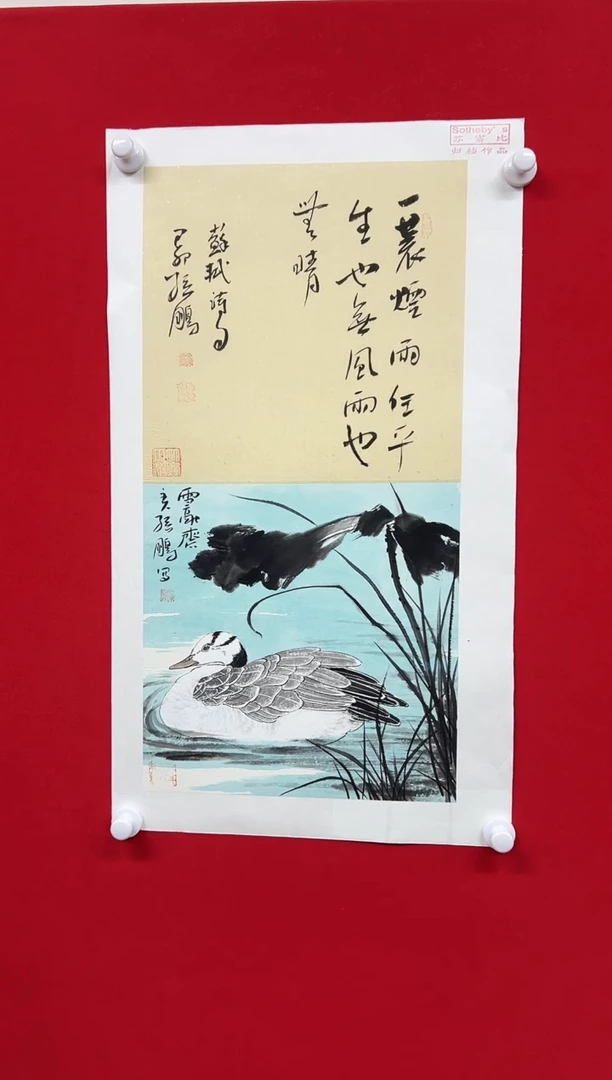 Sotheby's
苏富比
作品
一蓑煙雨任平
生也無風雨也
無晴
蘇軾詩句
鵬
雪豪齋
鵬寫